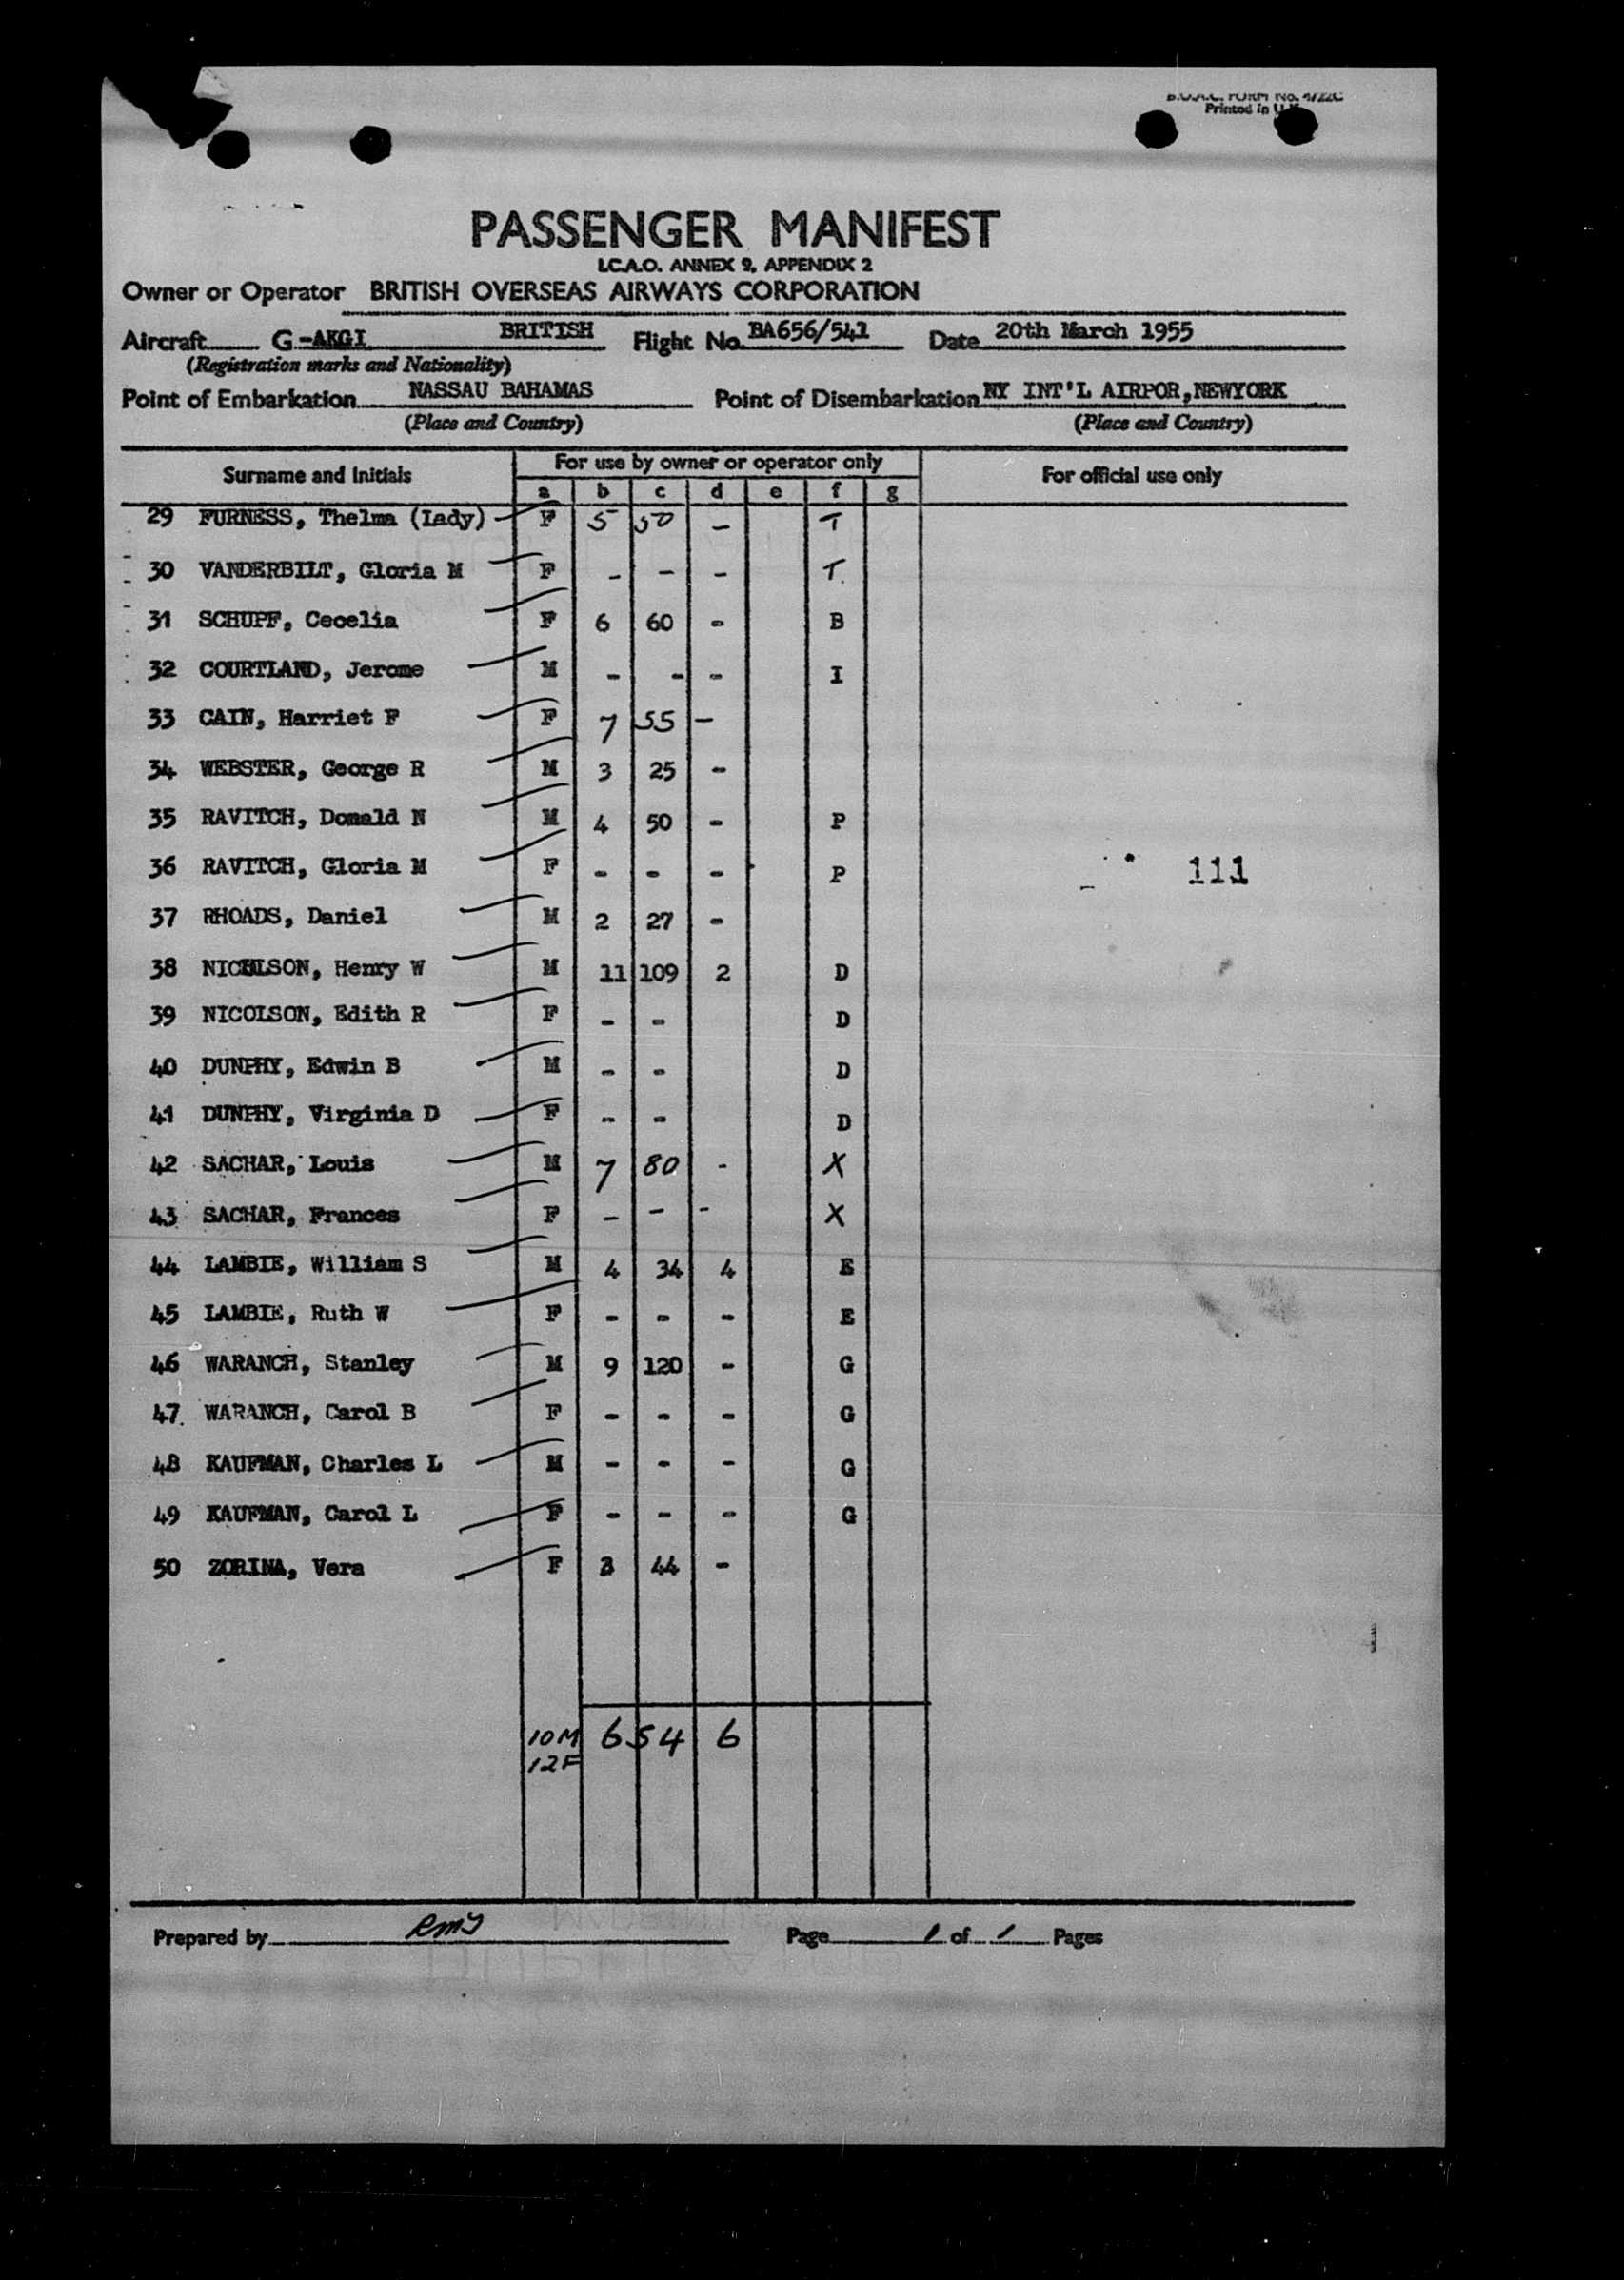 B.O.A.C. FORM No. 4/22C
Printed in U.K.
PASSENGER MANIFEST
I.C.A.O. ANNEX 9, APPENDIX 2
Owner or Operator BRITISH OVERSEAS AIRWAYS CORPORATION
Aircraft G-AKGI BRITISH Flight No. BA656/541 Date 20th March 1955
(Registration marks and Nationality)
Point of Embarkation NASSAU BAHAMAS Point of Disembarkation NY INT'L AIRPOR,NEWYORK
(Place and Country) (Place and Country)
Surname and Initials For use by owner or operator only For official use only
a b c d e f g
29 FURNESS, Thelma (Lady) F 5 50 - T
30 VANDERBILT, Gloria M F - - - T.
31 SCHUPF, Cecelia F 6 60 - B
32 COURTLAND, Jerome M - - - I
33 CAIN, Harriet F F 7 55 -
34 WEBSTER, George R M 3 25 -
35 RAVITCH, Donald N M 4 50 - P
36 RAVITCH, Gloria M F - - - P 111
37 RHOADS, Daniel M 2 27 -
38 Henry W M 11 109 2 D
39 NICOLSON, Edith R F - - D
40 DUNPHY, Edwin B M - - D
41 DUNPHY, Virginia D F - - D
42 SACHAR, Louis M 7 80 - X
43 SACHAR, Frances F - - - X
44 LAMBIE, William S M 4 34 4 E
45 LAMBIE, Ruth W F - - - E
46 WARANCH, Stanley M 9 120 - G
47 WARANCH, Carol B F - - - G
48 KAUFMAN, Charles L M - - - G
49 KAUFMAN, Carol L F - - - G
50 ZORINA, Vera F 3 44 -
10M 654 6
12F
Prepared by Page 1 of 1 Pages